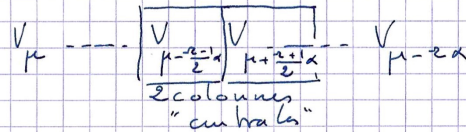 V_μ ----- V_{μ-\frac{r-1}{2}α} V_{μ+\frac{r+1}{2}α} --- V_{μ-rα}
2 colonnes
"centrales"